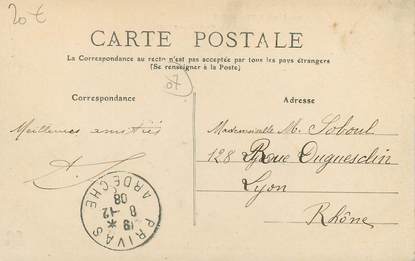 20 €
CARTE POSTALE
La Correspondance au recto n'est pas acceptée par tous les pays étrangers
(Se renseigner à la Poste)
07
Correspondance
Adresse
Meilleures amitiés
Mademoiselle M. Soboul
128 Rue Duguesclin
Lyon
Rhône
PRIVAS
ARDÈCHE
8 -12
08